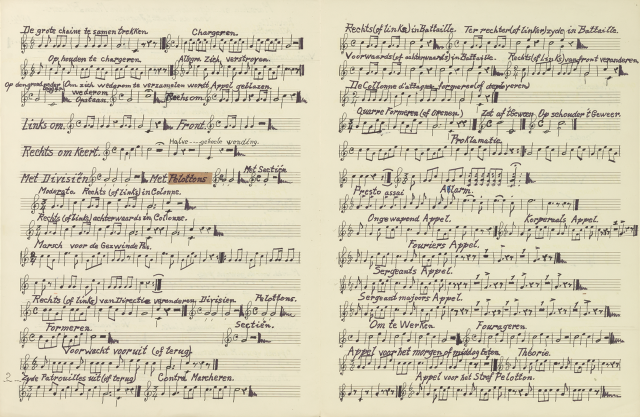 De grote chaine te samen trekken. Chargeren.
Op houden te chargeren. Allgm. Zich verstroyen.
Om zich wederom te verzamelen wordt Appel geblazen.
wederom
Opstaan. Rechts om.
Links om. Front.
Halve - geheele wending.
Rechts om Keert.
Met Sectiën
Met Divisiën Met Pelottons
Moderato. Rechts (of links) in Colonne.
Rechts (of links) achterwaards in Colonne.
Marsch voor de Gezwinde Pas.
Rechts (of links) van Directie veranderen. Divisien Pelottons.
Formeren. Sectiën.
Voorwacht vooruit (of terug)
2
Zyde Patrouilles uit (of terug) Contra Marcheren.
Rechts (of links) in Battaille. Ter rechter (of linker) zyde in Battaille.
Voorwaards (of achterwaards) in Battaille. Rechts (of links) van front veranderen.
De Collonne d'attaque formeren (of deployeren)
Quarre Formeren (of openen). Zet af 't Geweer. Op schouder 't Geweer
Proklamatie.
Presto assai Allarm.
Ongewapend Appel. Korporaals Appel.
Fouriers Appel.
Sergeants Appel.
Sergeand majoors Appel.
Om te Werken Fourageren.
Appel voor het morgen of middag eten Théorie.
Appel voor het Straf Pelotton.